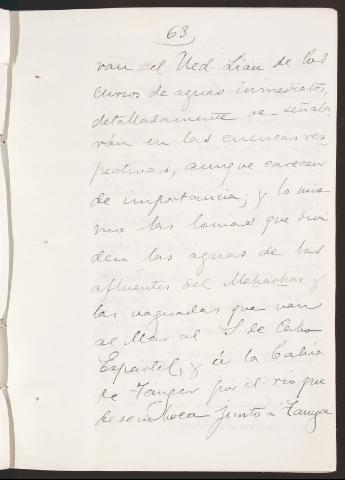 63
van el Ued Lian de los
cursos de aguas inmediatos,
detalladamente se señala-
rán en las cuencas res-
pectivas, aunque carecen
de importancia; y lo mis-
mo las lomas que divi
den las aguas de los
afluentes del Meharhar y
las vaguadas que van
al Mar al S. de Cabo
Espartel, y á la Bahía
de Tánger por el río que
desemboca junto a Tanya